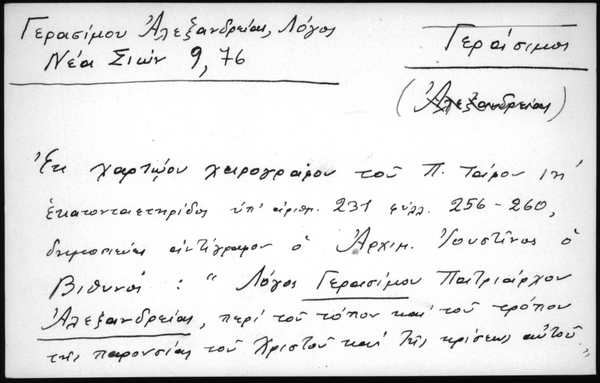 Γερασίμου Ἀλεξανδρείας, Λόγος
Νέα Σιών 9, 76
Γεράσιμος
(Ἀλεξανδρείας)
Ἐκ χαρτῴου χειρογράφου τοῦ Π. Τάφου ιη'
ἑκατονταετηρίδος ὑπ' ἀριθμ. 231 φύλλ. 256-260,
δημοσιεύει ἀντίγραφον ὁ Ἀρχιμ. Ἰουστῖνος ὁ
Βιθυνός : "Λόγος Γερασίμου Πατριάρχου
Ἀλεξανδρείας, περί τοῦ τόπου καί τοῦ τρόπου
τῆς παρουσίας τοῦ Χριστοῦ καί τῆς κρίσεως αὐτοῦ."